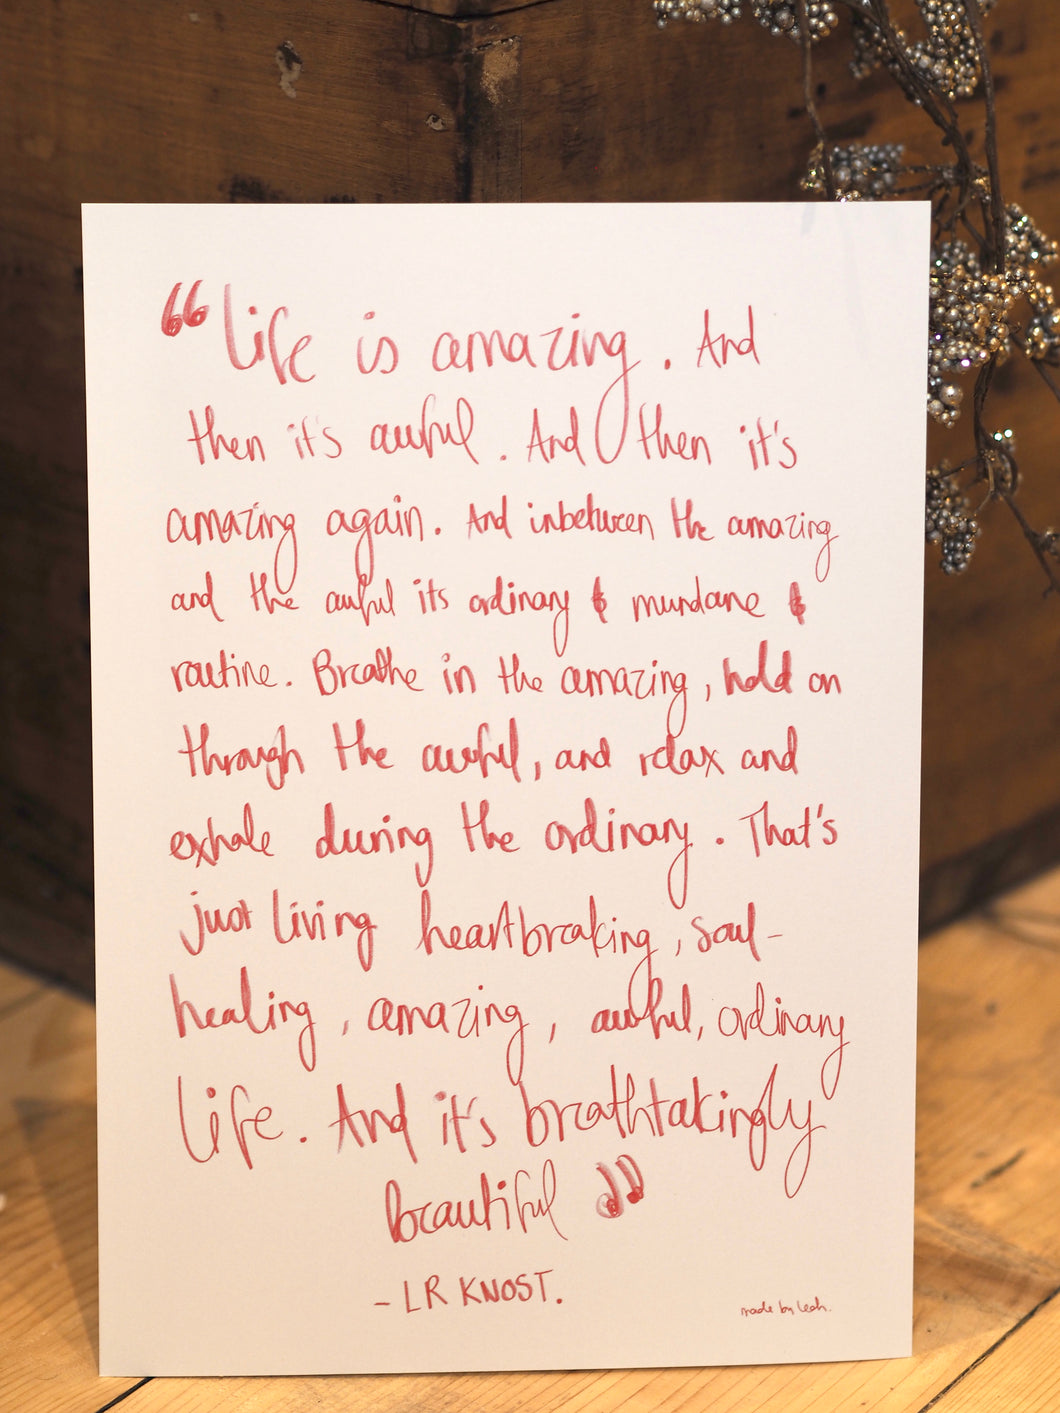 “Life is amazing. And
then it's awful. And then it's
amazing again. And inbetween the amazing
and the awful its ordinary & mundane &
routine. Breathe in the amazing, hold on
through the awful, and relax and
exhale during the ordinary. That's
just living heartbreaking, soul-
healing, amazing, awful, ordinary
life. And it's breathtakingly
beautiful”
- LR KNOST.
made by Leah.